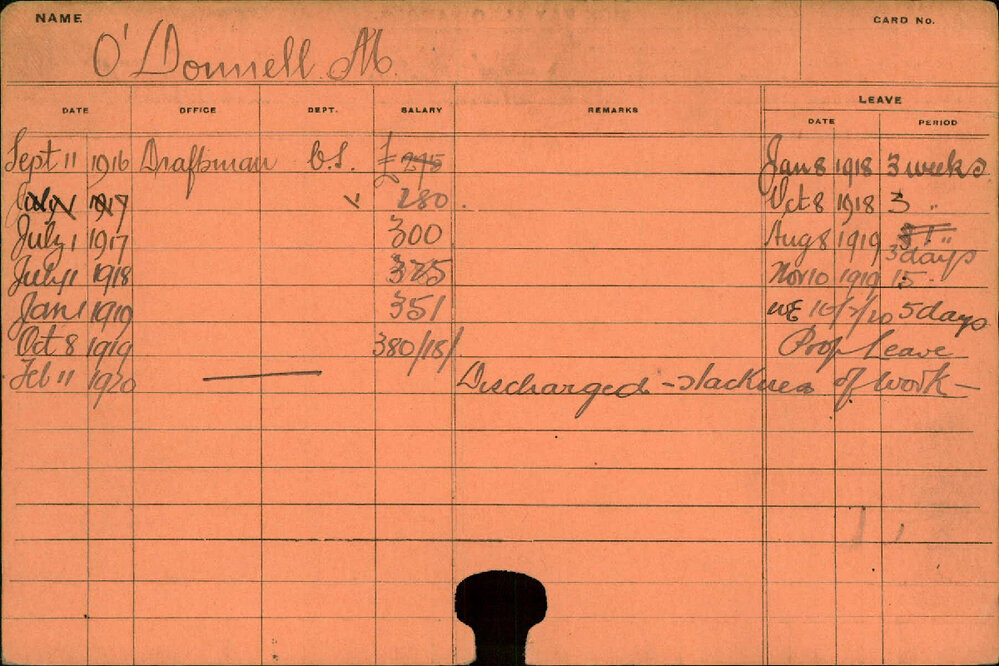 NAME
CARD No.
O'Donnell M.
LEAVE
DATE OFFICE DEPT. SALARY REMARKS DATE PERIOD
Sept 11 1916 Draftsman C.S. £275 Jan 8 1918 3 weeks
July 1 1917 280. Oct 8 1918 3 "
July 1 1917 300 Aug 8 1919 "
3 days
July 1 1918 325 Nov 10 1919 15
Jan 1 1919 351 WE 5 days
Oct 8 1919 380/18/ Prop Leave
Feb 11 1920 — Discharged - slackness of work -